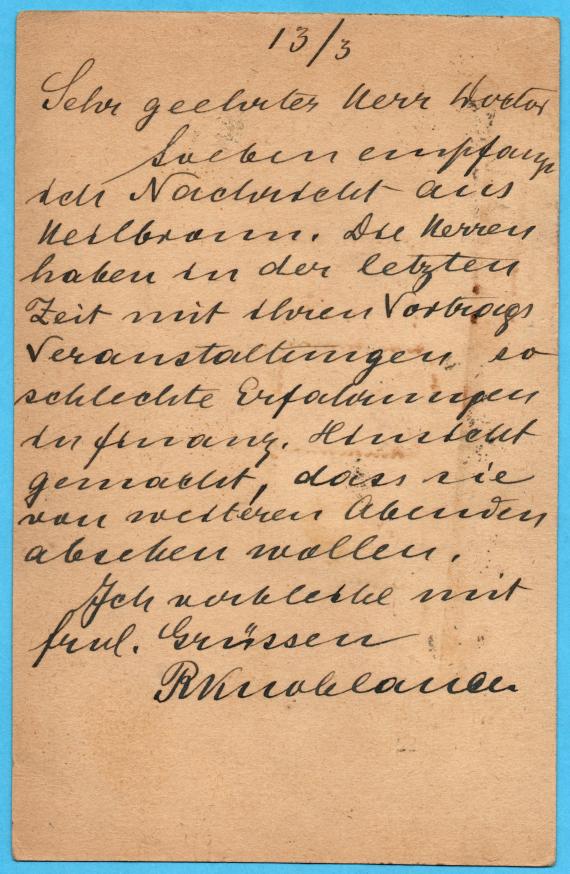 13/3
Sehr geehrter Herr Doctor
Soeben empfange
ich Nachricht aus
Heilbronn. Die Herren
haben in der letzten
Zeit mit ihren Vortrags
Veranstaltungen so
schlechte Erfahrungen
in finanz. Hinsicht
gemacht, dass sie
von weiteren Abenden
absehen wollen.
Ich verbleibe mit
frdl. Grüssen